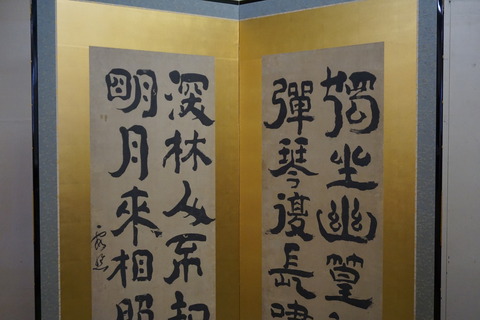 獨坐幽篁
彈琴復長嘯
深林人不知
明月來相照